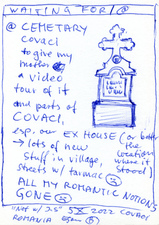 WAITING FOR/@
@ CEMETARY
COVACI
to give my
mother
a video
tour of it
and parts of
COVACI,
esp. our EX HOUSE (or better
the location
where it
stood)
→ lots of new
stuff in village,
streets w/ tarmac
ALL MY ROMANTIC NOTIONS
GONE
2022 COVACI
ROMANIA